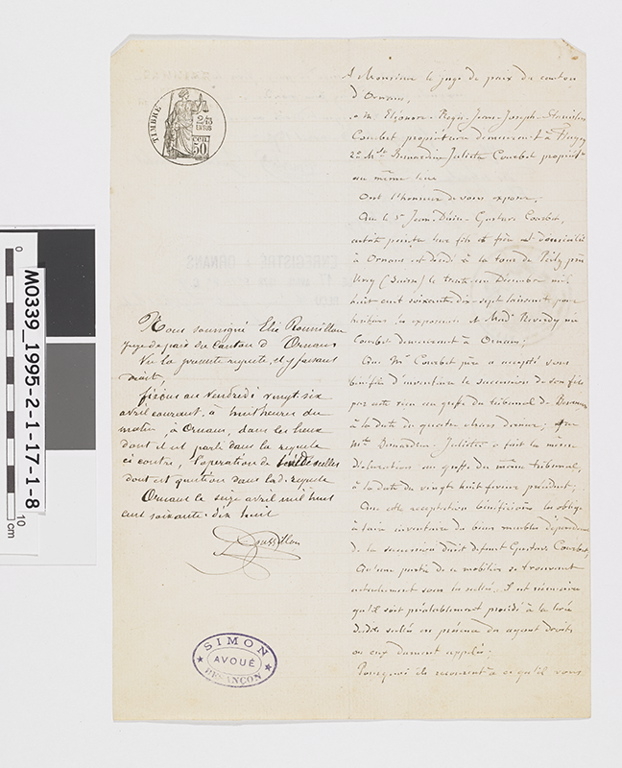 TIMBRE
2/10 EN SUS
50
A Monsieur le juge de paix du canton
d'Ornans,
1° M. Eléonor-Régis-Jean-Joseph-Stanislas
Courbet propriétaire demeurant à Flagey
2° Mlle Bernardine Juliette Courbet propriét
au même lieu
Ont l'honneur de vous exposer,
Que le Sr Jean-Désiré-Gustave Courbet,
artiste peintre leur fils et frère domicilié
à Ornans est décédé à la tour de Peilz près
Vevey (Suisse) le trente un Décembre mil
huit cent soixante-dix-sept laissant pour
héritiers les exposants et Made Reverdy née
Courbet demeurant à Ornans;
Que Mr Courbet père a accepté sous
bénéfice d'inventaire la succession de son fils
par acte reçu au greffe du tribunal de Besançon
à la date du quatre dernier; que
Mlle Bernardine Juliette a fait la même
déclaration au greffe du même tribunal,
à la date du vingt huit février précédent;
Que cette acceptation bénéficiaire les oblige
à faire inventaire des biens meubles dépendant
de la succession dudit défunt Gustave Courbet,
Qu'une partie de ce mobilier se trouvant
actuellement sous les scellés, il est nécessaire
qu'il soit préalablement procédé à la levée
desdits scellés en présence des ayant droits
ou eux dûment appelés;
Pourquoi ils recourent à ce qu'il vous
Nous soussigné Elie Roussillon
Juge de paix du Canton d'Ornans
Vu la présente requête, et y faisant
droit,
fixons au vendredi vingt six
avril courant, à huit heures du
matin, à Ornans, dans les lieux
dont il est parlé dans la requête
ci contre, l'opération de scellés
dont est question dans lad. requête
Ornans le seize avril mil huit
cent soixante-dix huit
Roussillon
SIMON
AVOUÉ
BESANÇON
M0339_1995-2-1-17-1-8
0
10
cm